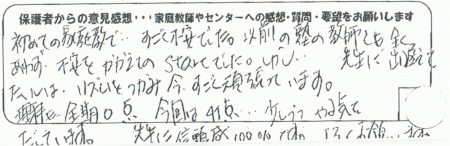 保護者からの意見感想・・・家庭教師やセンターへの感想・質問・要望をお願いします
初めての家庭教師で・・すごく不安でした。以前の塾の教師とも全く
あわず・不安をかかえてのStartでした。しかし・先生に出逢って
からは、リズムをつかみ今、すごく頑張っています。
理科も前期0点 今回は41点・・少しづつ やる気を
だしています。 先生に信頼感100%です。 お願い